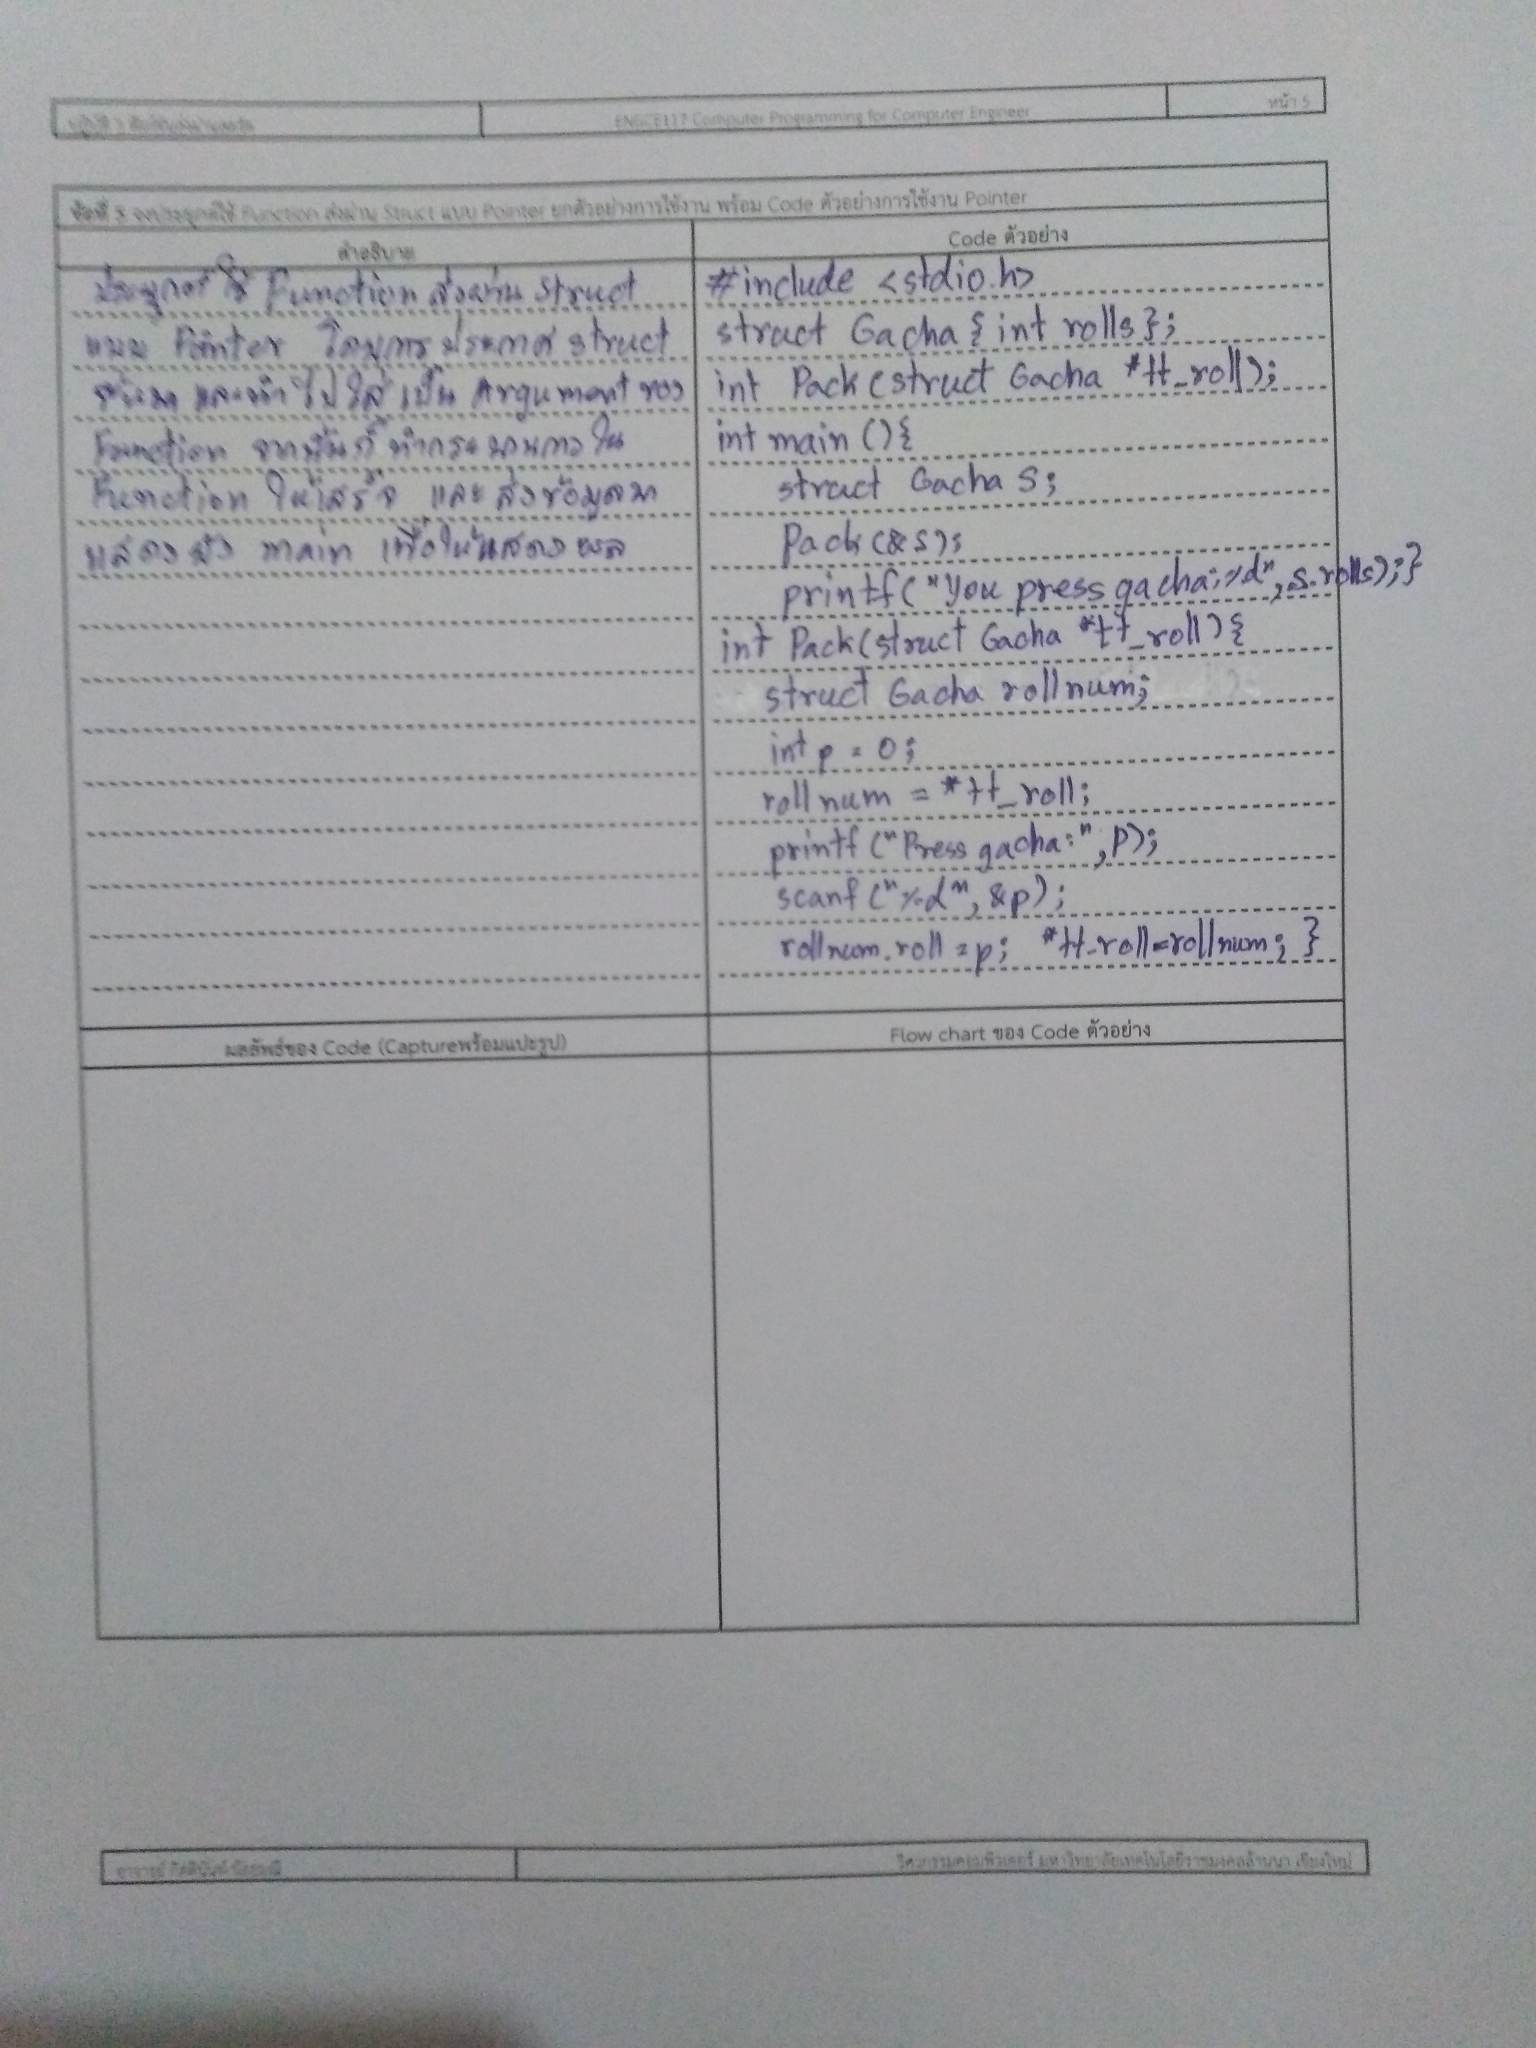 ENGCE117 Computer Programming for Computer Engineer
หน้า 5
ข้อที่ 5 จงประยุกต์ใช้ Function ส่งผ่าน Struct แบบ Pointer ยกตัวอย่างการใช้งาน พร้อม Code ตัวอย่างการใช้งาน Pointer
คำอธิบาย
Code ตัวอย่าง
ประยุกต์ใช้ Function ส่งผ่าน struct
แบบ Pointer โดยการประกาศ struct
และนำไปใส่เป็น Argument ของ
Function จากนั้นก็ทำกระบวนการใน
Function ให้เสร็จ และส่งข้อมูลมา
แสดงยัง main เพื่อให้แสดงผล
#include <stdio.h>
struct Gacha { int rolls };
int Pack (struct Gacha *tt_roll);
int main () {
struct Gacha s;
Pack (&s);
printf ("You press gacha: %d", s.rolls); }
int Pack (struct Gacha *tt_roll) {
struct Gacha rollnum;
int p = 0;
rollnum = *tt_roll;
printf ("Press gacha:", p);
scanf ("%d", &p);
rollnum.roll = p; *tt_roll = rollnum; }
ผลลัพธ์ของ Code (Captureพร้อมแปะรูป)
Flow chart ของ Code ตัวอย่าง
วิศวกรรมคอมพิวเตอร์ มหาวิทยาลัยเทคโนโลยีราชมงคลล้านนา เชียงใหม่